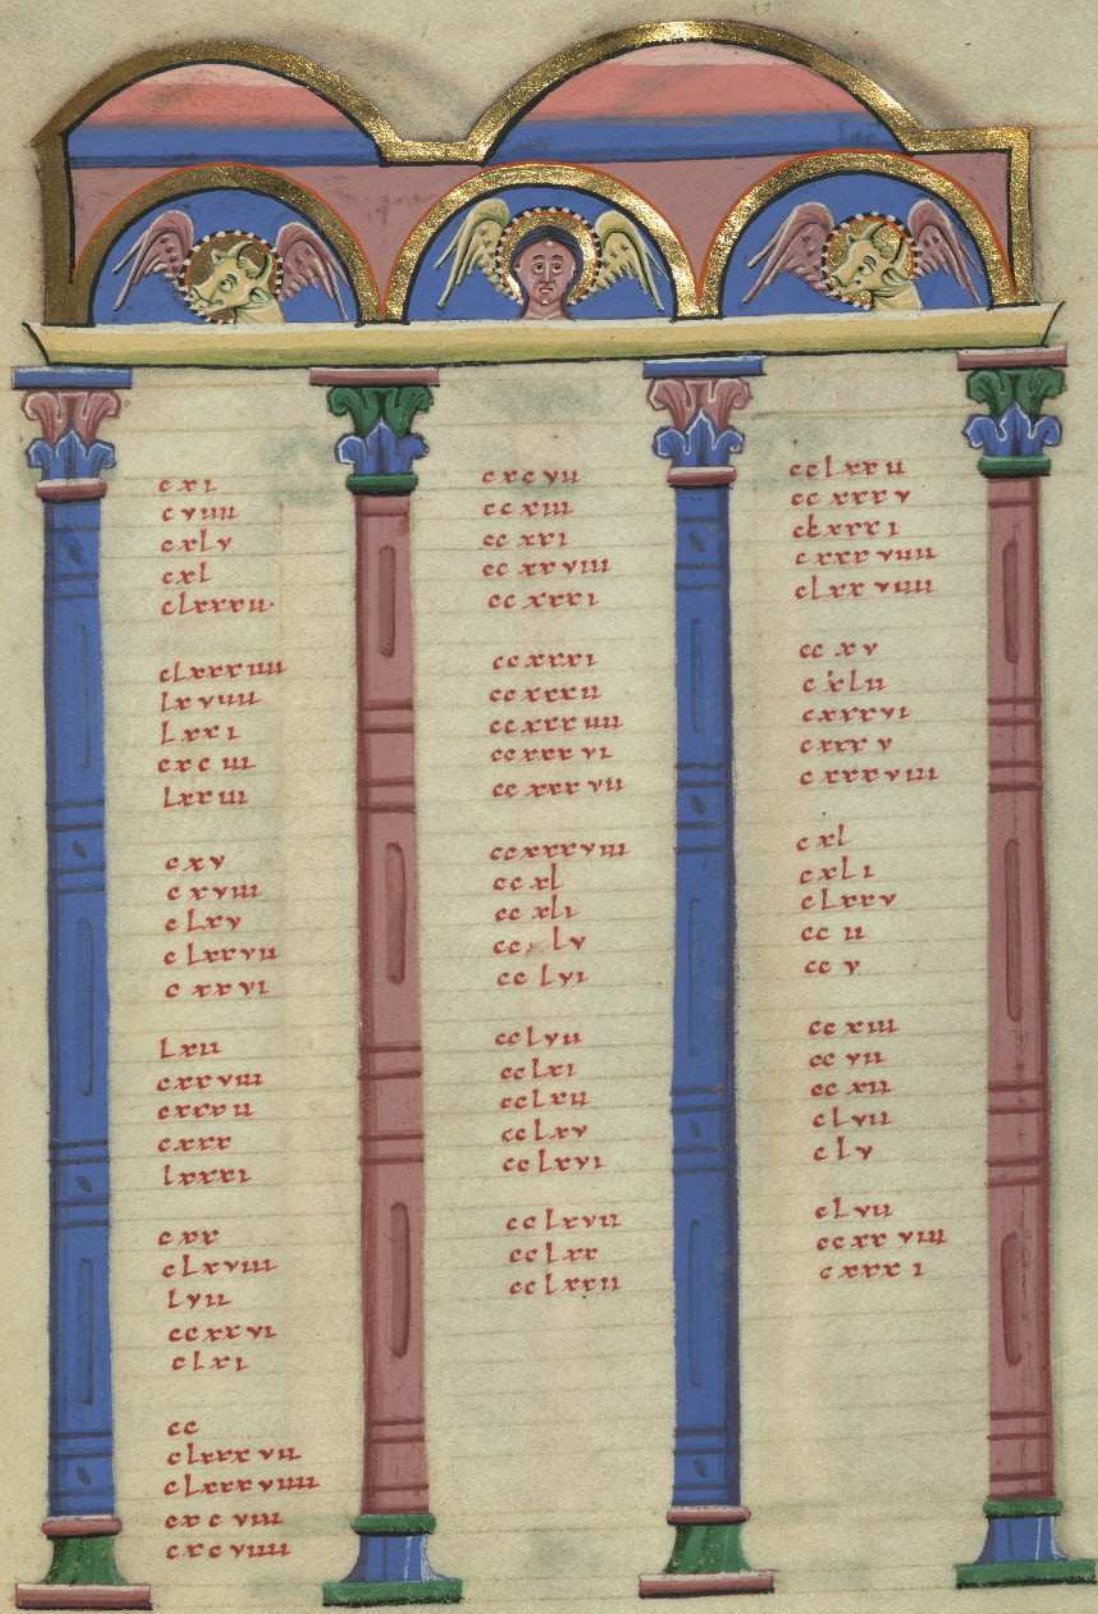 cxi
cviiii
cxlv
cxl
clxxxii
clxxxiiii
lxviiii
lxxi
cxciii
lxxiii
cxv
cxviii
clxv
clxxvii
cxxvi
lxii
cxxviii
cxxxii
cxxx
lxxxi
cxx
clxviii
lvii
ccxxvi
clxi
cc
clxxxvii
clxxxviiii
cxcviii
cxcviiii
cxcvii
ccxiii
ccxxi
ccxxviii
ccxxxi
ccxxxi
ccxxxii
ccxxxiiii
ccxxxvi
ccxxxvii
ccxxxviii
ccxl
ccxli
cclv
cclvi
cclvii
cclxi
cclxii
cclxv
cclxvi
cclxvii
cclxx
cclxxii
cclxxii
ccxxxv
clxxxi
cxxxviiii
clxxviiii
ccxv
cxlii
cxxxvi
cxxxv
cxxxviii
cxl
cxli
clxxv
ccii
ccv
ccxiii
ccvii
ccxii
clvii
clv
clvii
ccxxviii
cxxxi